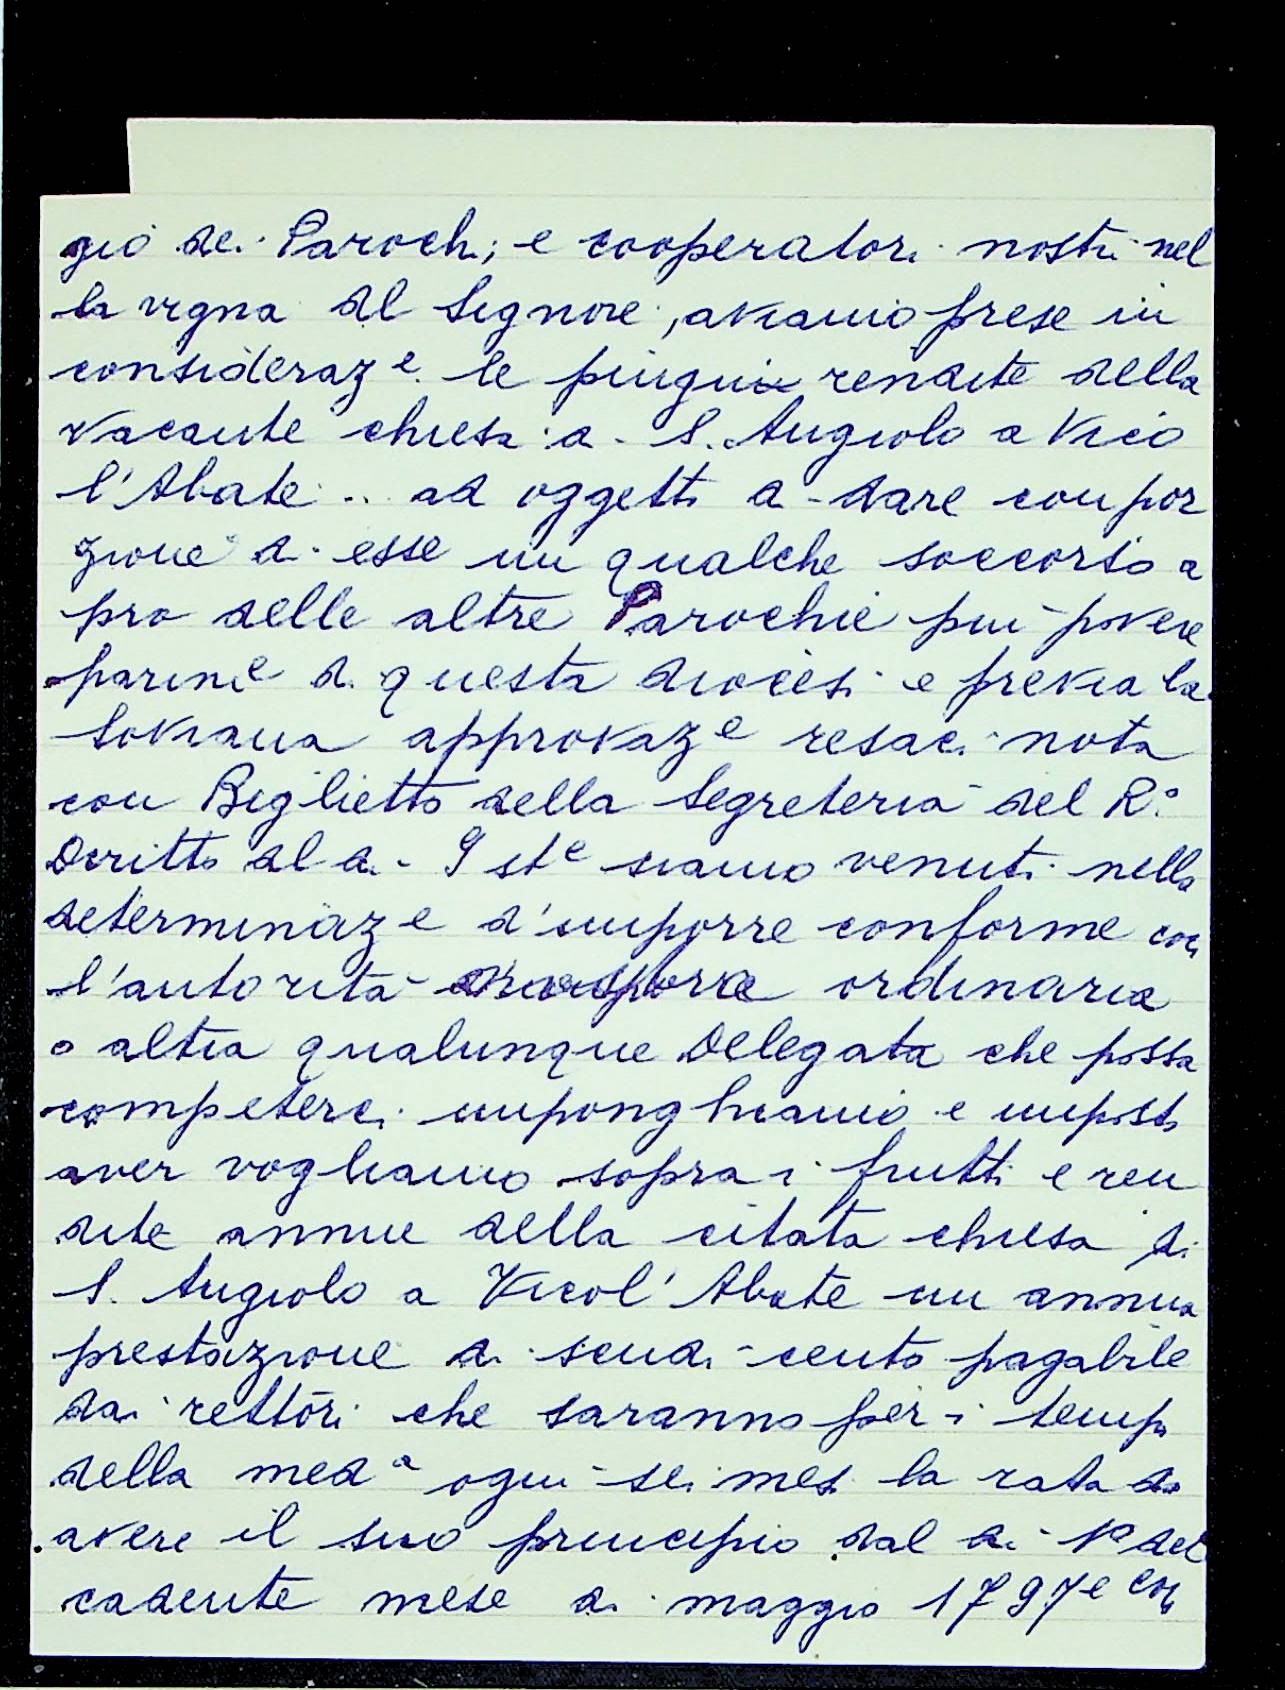 gio dei Parochi, e cooperatori nostri nel
la vigna del Signore, aviamo prese in
consideraz e. le pingui rendite della
vacante chiesa di S. Angiolo a Vico
l'Abate .. ad oggetti di dare con por
zione di esse un qualche soccorso a
pro delle altre Parochie più povere
parim e di questa diocesi e previa la
Sovrana approvaz e resaci nota
con Biglietto della Segreteria del R.o
Diritto al di - 9 st e siamo venuti nella
determinaz e d'imporre conforme con
l'autorità ordinaria
o altra qualunque Delegata che possa
competerci imponghiamo e imposto
aver vogliamo sopra i frutti e ren
dite annue della citata chiesa di
S. Angiolo a Vico l'Abate un annua
prestazione di scudi cento pagabile
dai rettori che saranno per i tempi
della med a ogni sei mesi la rata da
avere il suo principio dal di 1o del
cadente mese di maggio 1797 e con